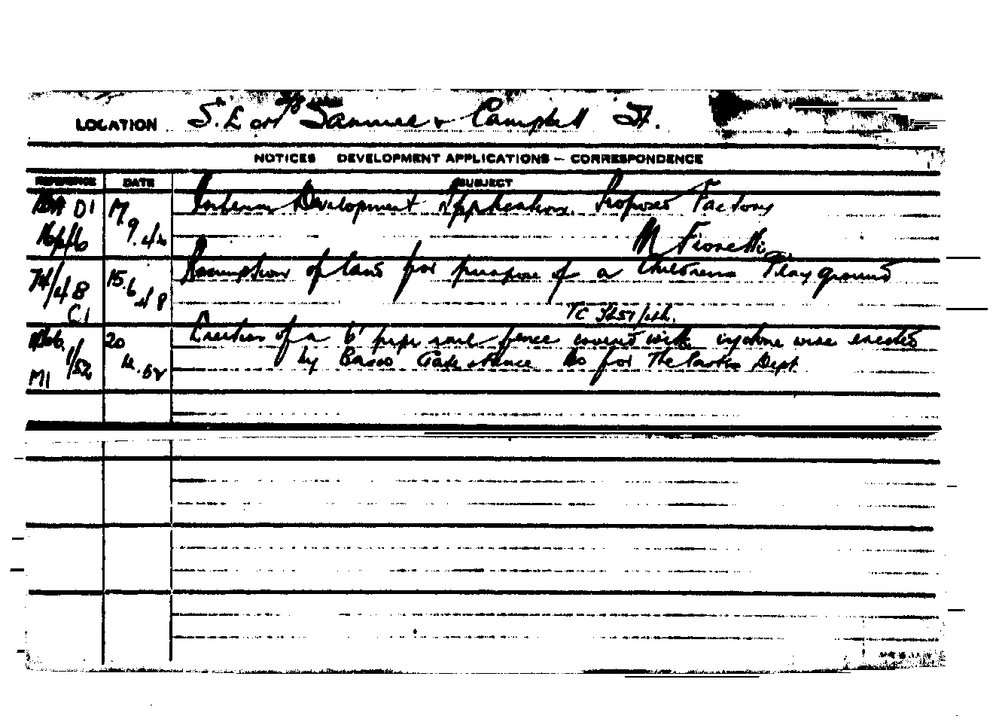 LOCATION S.E cor Samuel & Campbell St.
NOTICES DEVELOPMENT APPLICATIONS – CORRESPONDENCE
REFERENCE DATE SUBJECT
D1 17 Interim Development Application. Proposed Factory
9. M Fionelli
74/48 15.6 Resumption of land for purpose of a Childrens Playground
C1 48 TC 3257/
20 Erection of a 6' pipe rail fence covered with cyclone wire erected
1/52 12.52 by Gate & Fence Co for The Parks Dept
M1